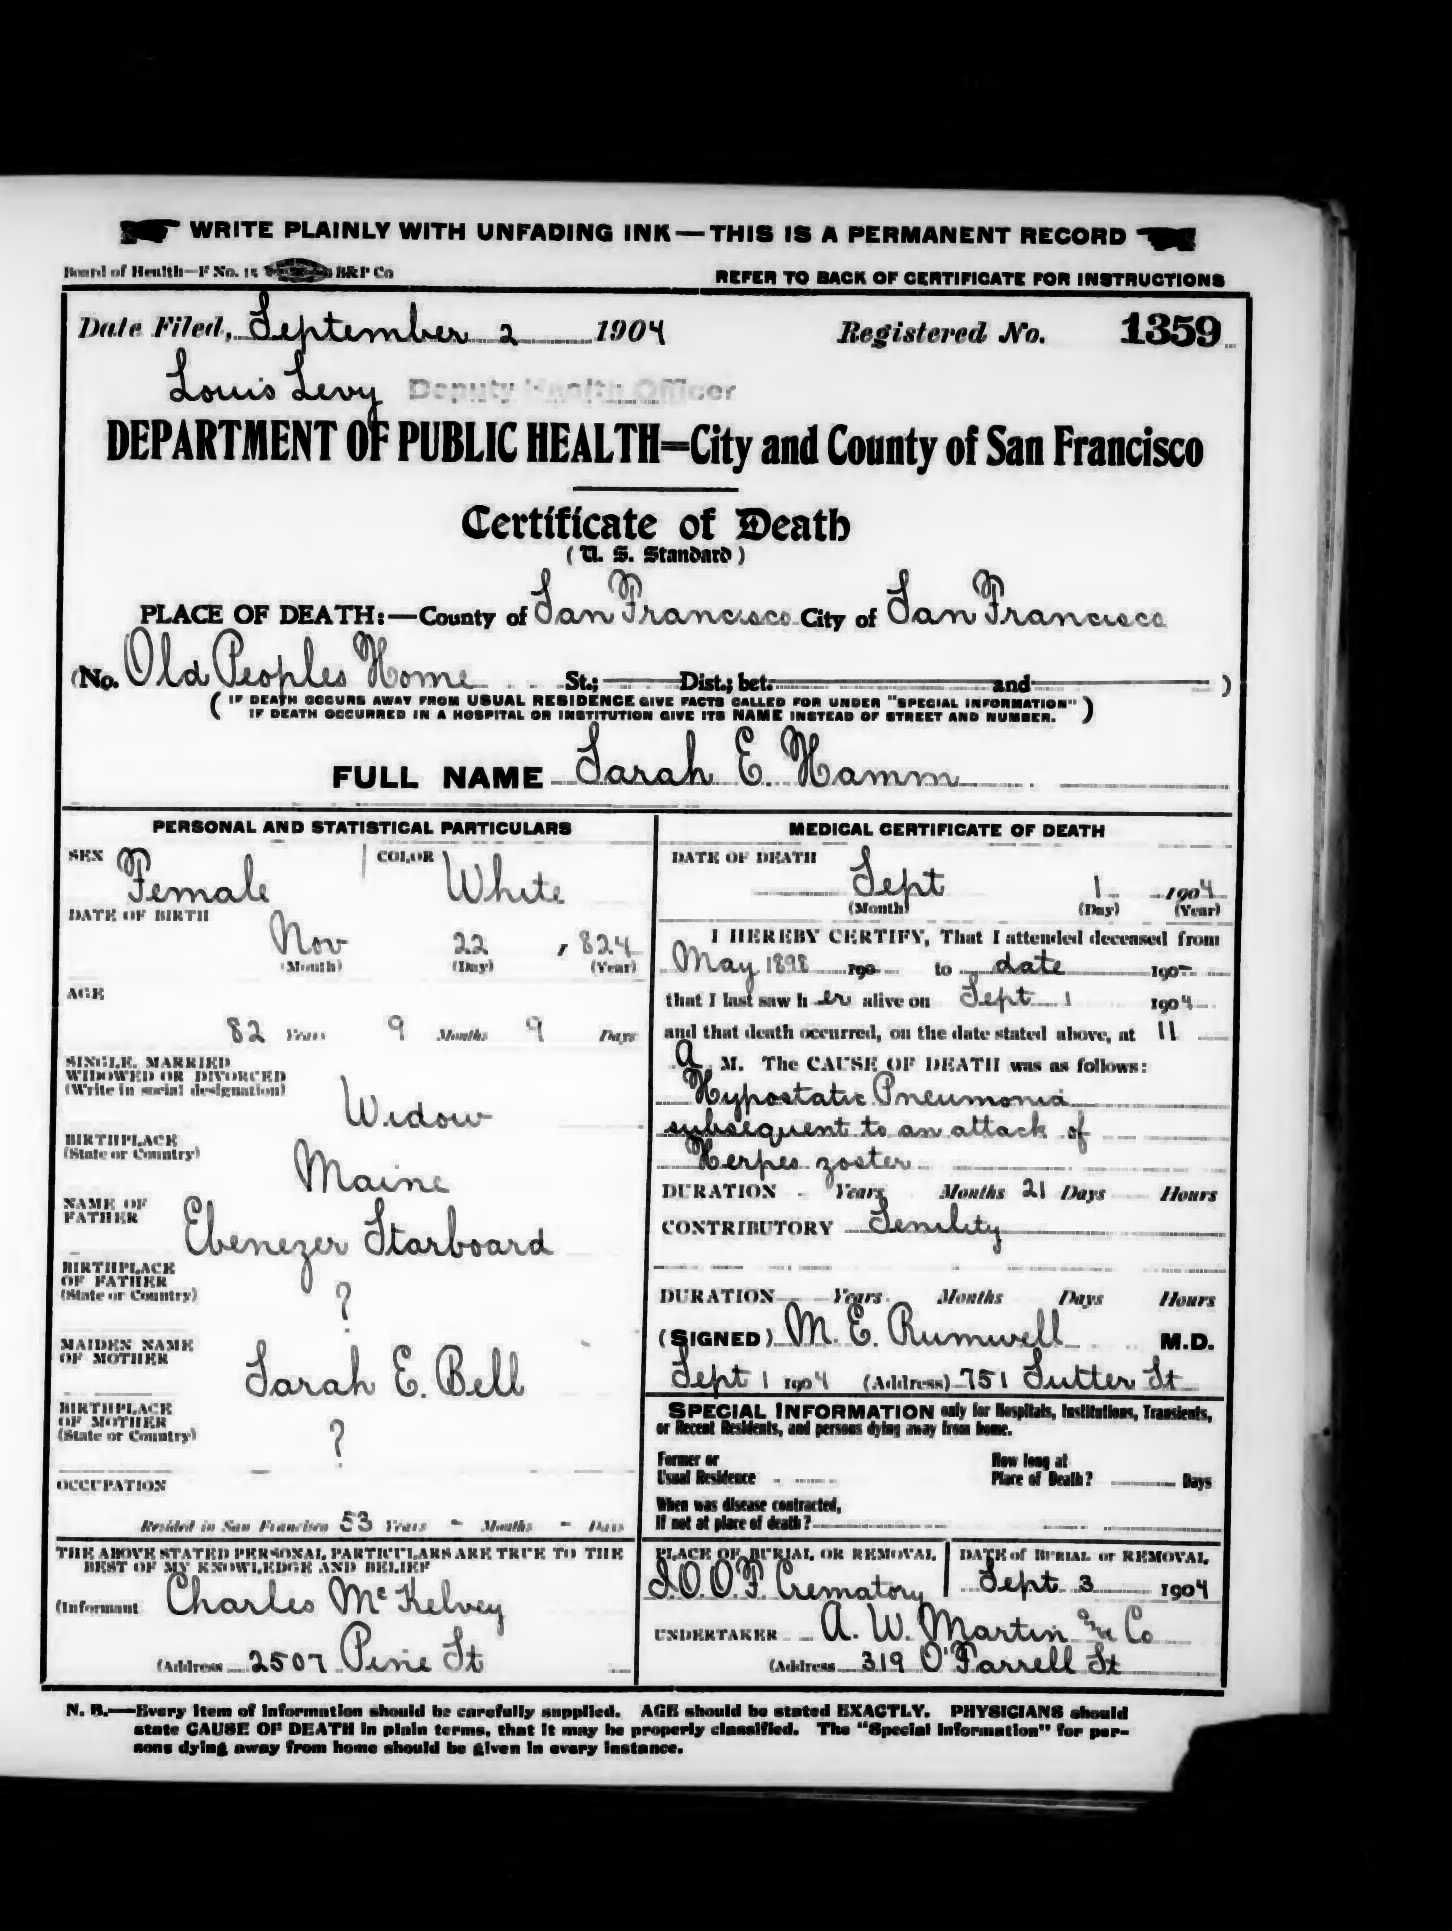 WRITE PLAINLY WITH UNFADING INK—THIS IS A PERMANENT RECORD
Board of Health—F No. 15 B&P Co
REFER TO BACK OF CERTIFICATE FOR INSTRUCTIONS
Date Filed, September 2 1904 Registered No. 1359
Louis Levy Deputy Health Officer
DEPARTMENT OF PUBLIC HEALTH=City and County of San Francisco
Certificate of Death
(U. S. Standard)
PLACE OF DEATH:—County of San Francisco City of San Francisco
(No. Old Peoples Home St.; Dist.; bet. and )
(IF DEATH OCCURS AWAY FROM USUAL RESIDENCE GIVE FACTS CALLED FOR UNDER "SPECIAL INFORMATION"
IF DEATH OCCURRED IN A HOSPITAL OR INSTITUTION GIVE ITS NAME INSTEAD OF STREET AND NUMBER.)
FULL NAME Sarah E. Hamm
PERSONAL AND STATISTICAL PARTICULARS
SEX Female COLOR White
DATE OF BIRTH
Nov 22 , 824
(Month) (Day) (Year)
AGE
82 Years 9 Months 9 Days
SINGLE, MARRIED
WIDOWED OR DIVORCED
(Write in social designation)
Widow
BIRTHPLACE
(State or Country)
Maine
NAME OF
FATHER
Ebenezer Starboard
BIRTHPLACE
OF FATHER
(State or Country)
?
MAIDEN NAME
OF MOTHER
Sarah E. Bell
BIRTHPLACE
OF MOTHER
(State or Country)
?
OCCUPATION
Resided in San Francisco 53 Years - Months - Days
THE ABOVE STATED PERSONAL PARTICULARS ARE TRUE TO THE
BEST OF MY KNOWLEDGE AND BELIEF
(Informant Charles McKelvey
(Address 2507 Pine St
MEDICAL CERTIFICATE OF DEATH
DATE OF DEATH
Sept 1 1904
(Month) (Day) (Year)
I HEREBY CERTIFY, That I attended deceased from
May 1898 190 to date 190
that I last saw her alive on Sept 1 1904
and that death occurred, on the date stated above, at 11
A M. The CAUSE OF DEATH was as follows:
Hypostatic Pneumonia
subsequent to an attack of
Herpes zoster
DURATION Years Months 21 Days Hours
CONTRIBUTORY Senility
DURATION Years Months Days Hours
(SIGNED) M. E. Rumwell M.D.
Sept 1 1904 (Address) 751 Sutter St
SPECIAL INFORMATION only for Hospitals, Institutions, Transients,
or Recent Residents, and persons dying away from home.
Former or
Usual Residence
How long at
Place of Death? Days
When was disease contracted,
If not at place of death?
PLACE OF BURIAL OR REMOVAL
I.O.O.F. Crematory
DATE of BURIAL or REMOVAL
Sept 3 1904
UNDERTAKER A. W. Martin & Co
(Address 319 O'Farrell St
N. B.—Every item of information should be carefully supplied. AGE should be stated EXACTLY. PHYSICIANS should
state CAUSE OF DEATH in plain terms, that it may be properly classified. The "Special Information" for per-
sons dying away from home should be given in every instance.